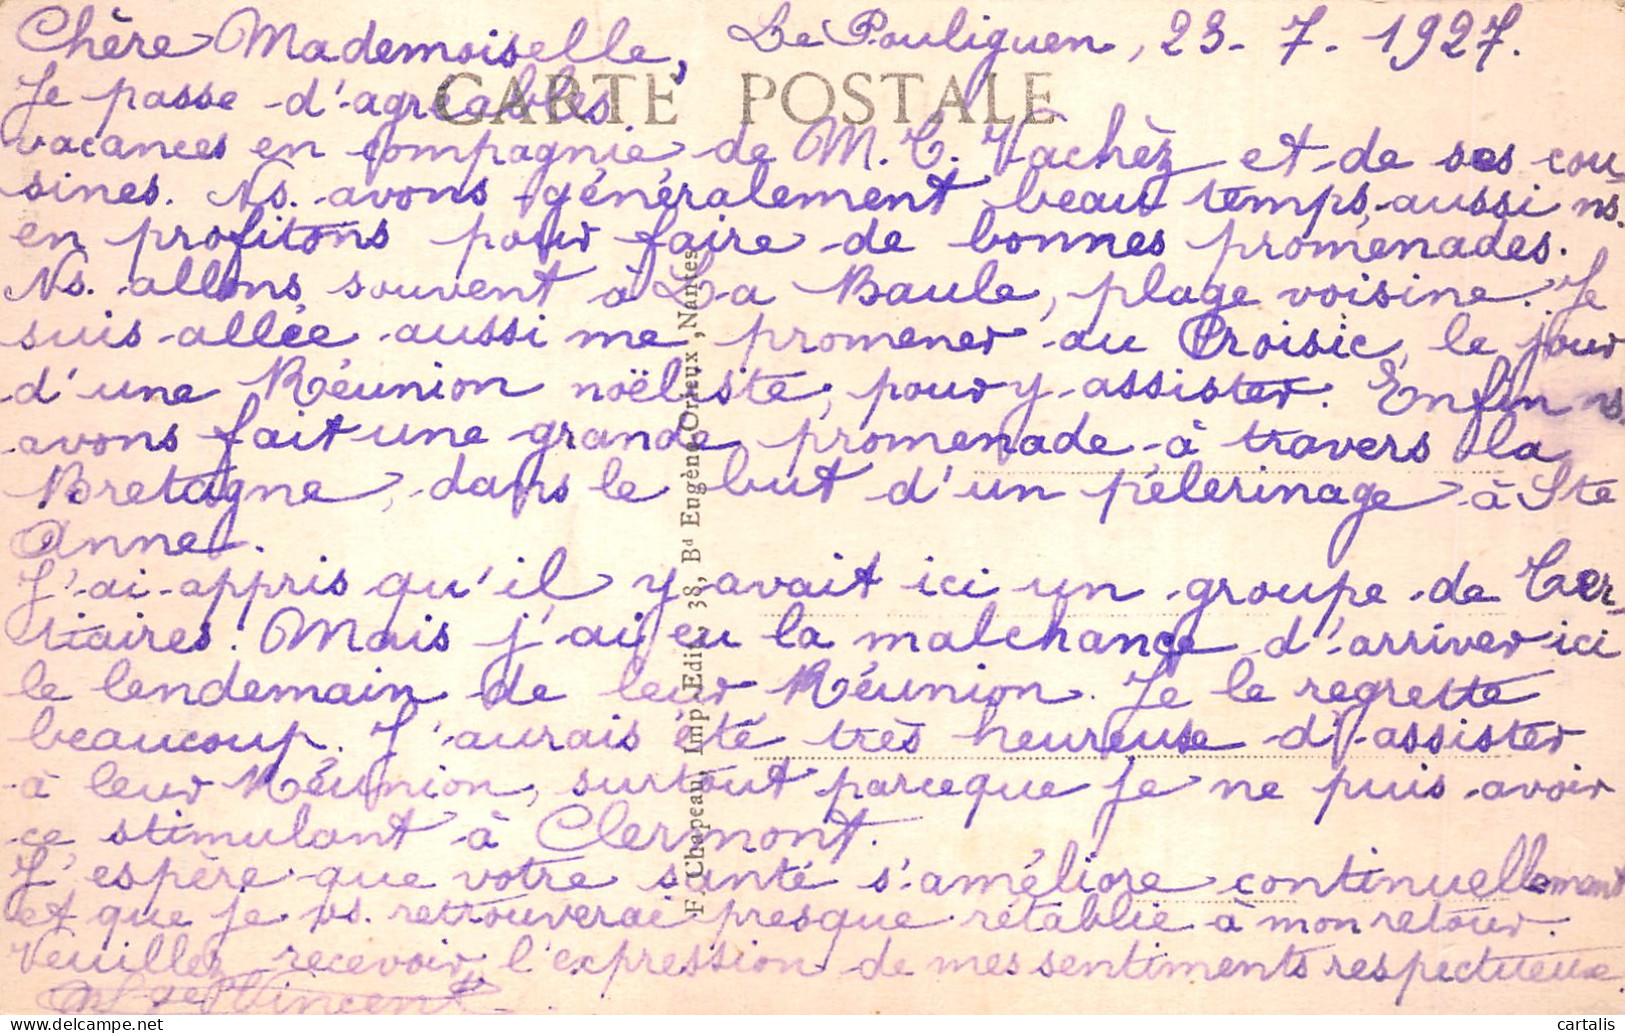 Chère Mademoiselle, Le Pouliguen, 23-7-1927.
CARTE POSTALE
Je passe d'agréables
vacances en compagnie de M. C. Vachèz et de ses cou-
sines. Ns. avons généralement beau temps, aussi ns.
en profitons pour faire de bonnes promenades.
Ns. allons souvent à La Baule, plage voisine. Je
suis allée aussi me promener au Croisic, le jour
d'une Réunion noëliste, pour y assister. Enfin ns.
avons fait une grande promenade à travers la
Bretagne, dans le but d'un pélerinage à Ste
Anne.
J'ai appris qu'il y avait ici un groupe de Ter-
tiaires. Mais j'ai eu la malchance d'arriver ici
le lendemain de leur Réunion. Je le regrette
beaucoup. J'aurais été très heureuse d'assister
à leur Réunion, surtout parceque je ne puis avoir
ce stimulant à Clermont.
J'espère que votre santé s'améliore continuellement
et que je vs. retrouverai presque rétablie à mon retour.
Veuillez recevoir l'expression de mes sentiments respectueux.
Vincent
F. Chapeau, Imp. Edit., 38, Bd Eugène Orieux, Nantes
cartalis